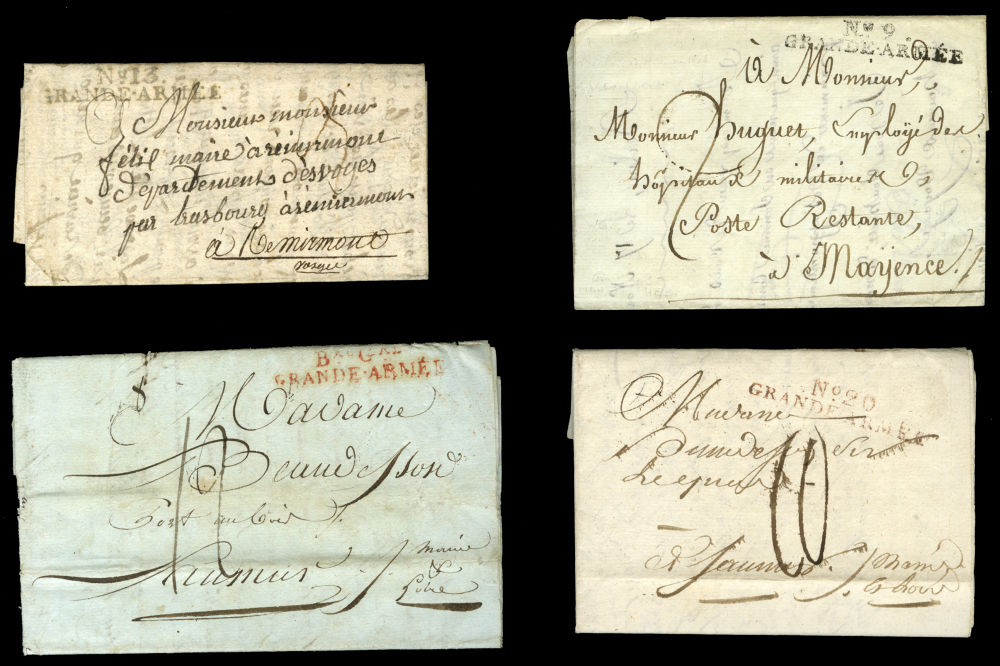 No 13.
GRANDE·ARMÉE
A Monsieur monsieur
félix maire à remiremont
département des voges
par trasbourg à remiremont
à Remirmont
vosges
No 9.
GRANDE·ARMÉE
à Monsieur,
Monsieur Huguet, Employé des
hôpitaux militaires
Poste Restante,
à Mayence.
Bau Gal
GRANDE·ARMÉE
Madame
Beaudesson
Port au bois
Saumur
maine
&
Loire
No 20
GRANDE ARMÉE
A Madame
10
à Saumur
maine
et Loire